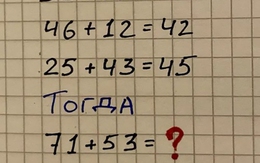 46+12=42
25+43=45
Тогда
71+53=?